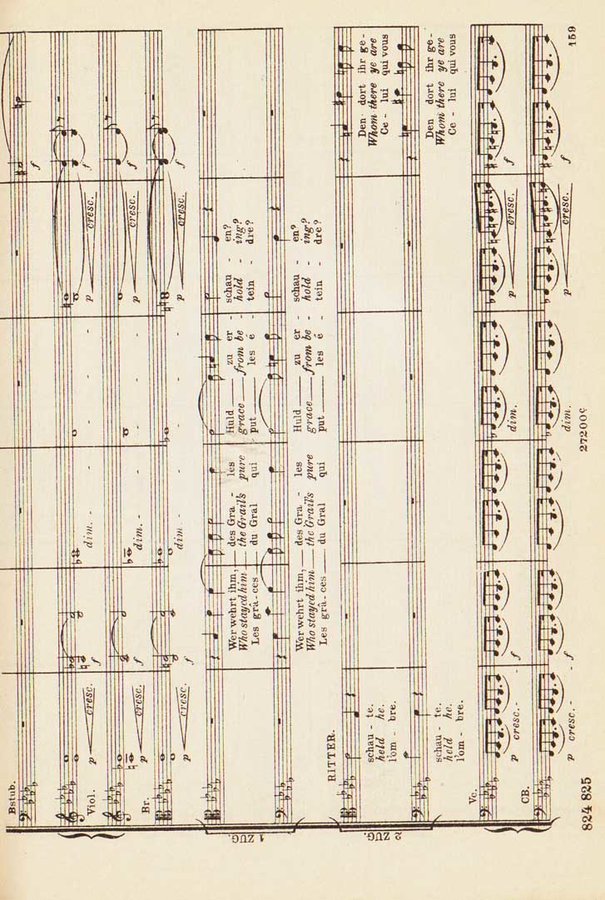 Bstub.
f
Viol.
p cresc. f dim. - p cresc. f
p cresc. f dim. - p cresc. f
Br.
p cresc. f dim. - p cresc. f
1 ZUG.
Wer wehrt ihm, des Gra - les Huld zu er - schau - en?
Who stayed him the Grail's pure grace from be - hold - ing?
Les grâ - ces du Gral qui put les é - tein - dre?
Wer wehrt ihm, des Gra - les Huld zu er - schau - en?
Who stayed him the Grail's pure grace from be - hold - ing?
Les grâ - ces du Gral qui put les é - tein - dre?
RITTER.
2 ZUG.
schau - te. Den dort ihr ge-
held he. Whom there ye are
l'om - bre. Ce - lui qui vous
schau - te. Den dort ihr ge-
held he. Whom there ye are
l'om - bre. Ce - lui qui vous
Vc.
p cresc. - f dim. p cresc. f
CB.
p cresc. - f dim. p cresc. f
824 825 159